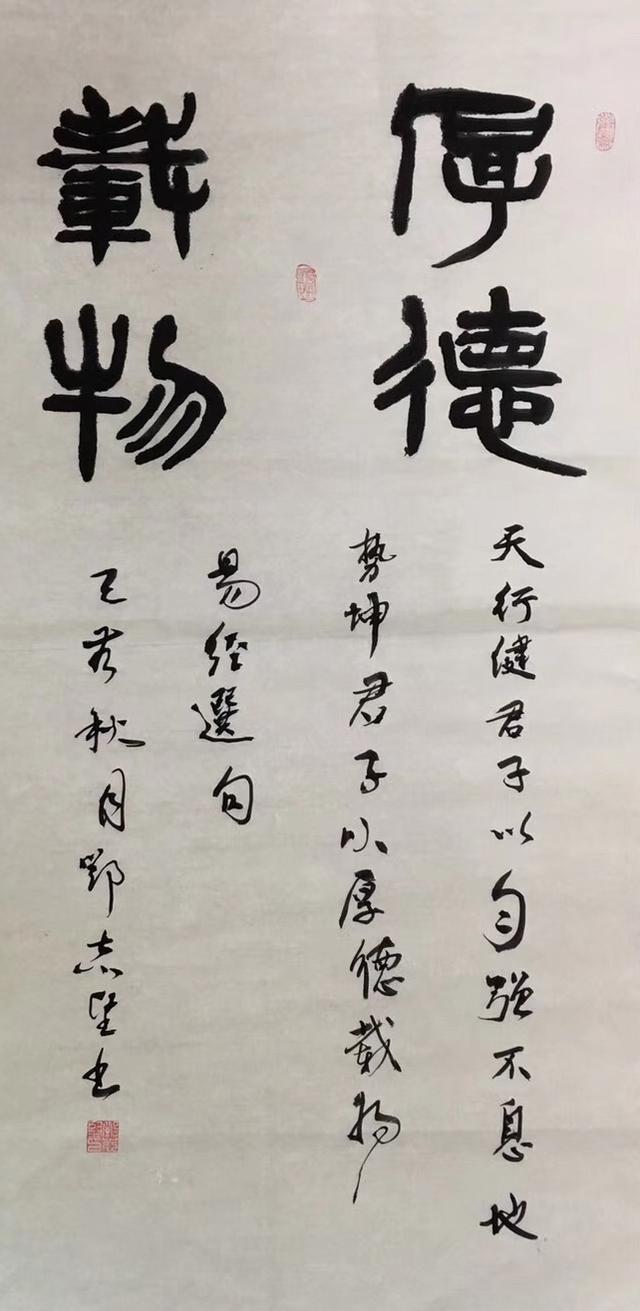 厚德
載物
天行健君子以自强不息地
勢坤君子以厚德載物
易經選句
己亥秋月鄂志坚书